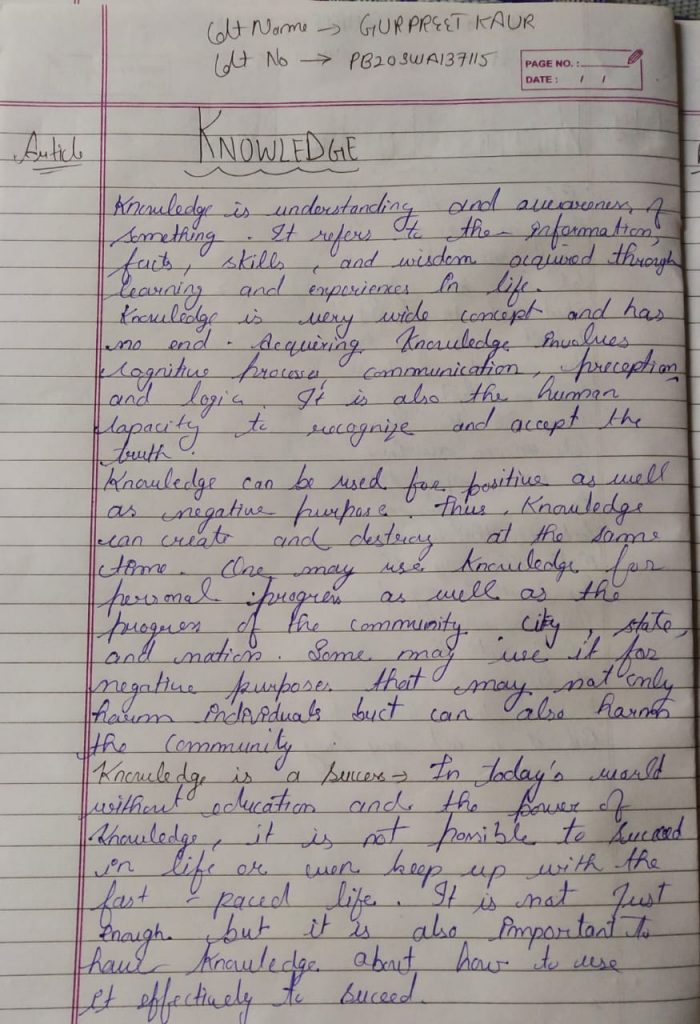 Cdt Name → GURPREET KAUR
Cdt No → PB20SWA137115
PAGE NO. :
DATE : / /
Article
KNOWLEDGE
Knowledge is understanding and awareness of
something. It refers to the information,
facts, skills, and wisdom acquired through
learning and experiences in life.
Knowledge is very wide concept and has
no end. Acquiring Knowledge involves
cognitive process, communication, preception
and logic. It is also the human
capacity to recognize and accept the
truth.
Knowledge can be used for positive as well
as negative purpose. Thus, Knowledge
can create and destroy at the same
time. One may use Knowledge for
personal progress as well as the
progress of the community city, state,
and nation. Some may use it for
negative purposes that may not only
harm individuals but can also harm
the community.
Knowledge is a succes → In today's world
without education and the power of
Knowledge, it is not possible to succeed
in life or even keep up with the
fast - paced life. It is not just
enough but it is also important to
have Knowledge about how to use
it effectively to succeed.